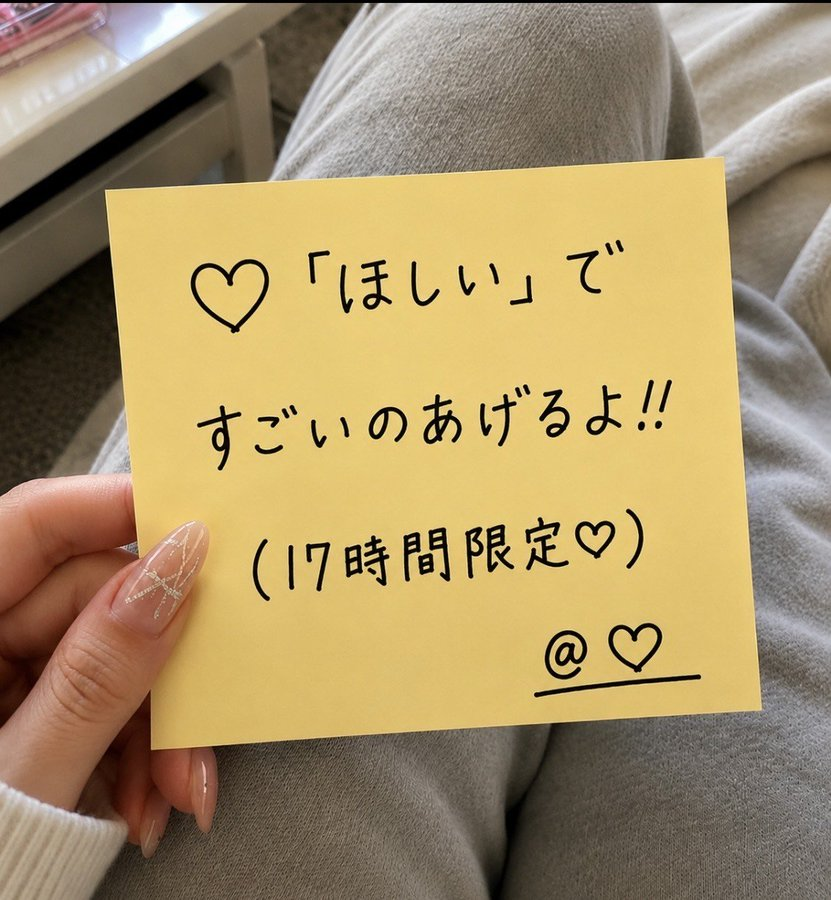 ♡「ほしい」で
すごいのあげるよ!!
(17時間限定♡)
@♡